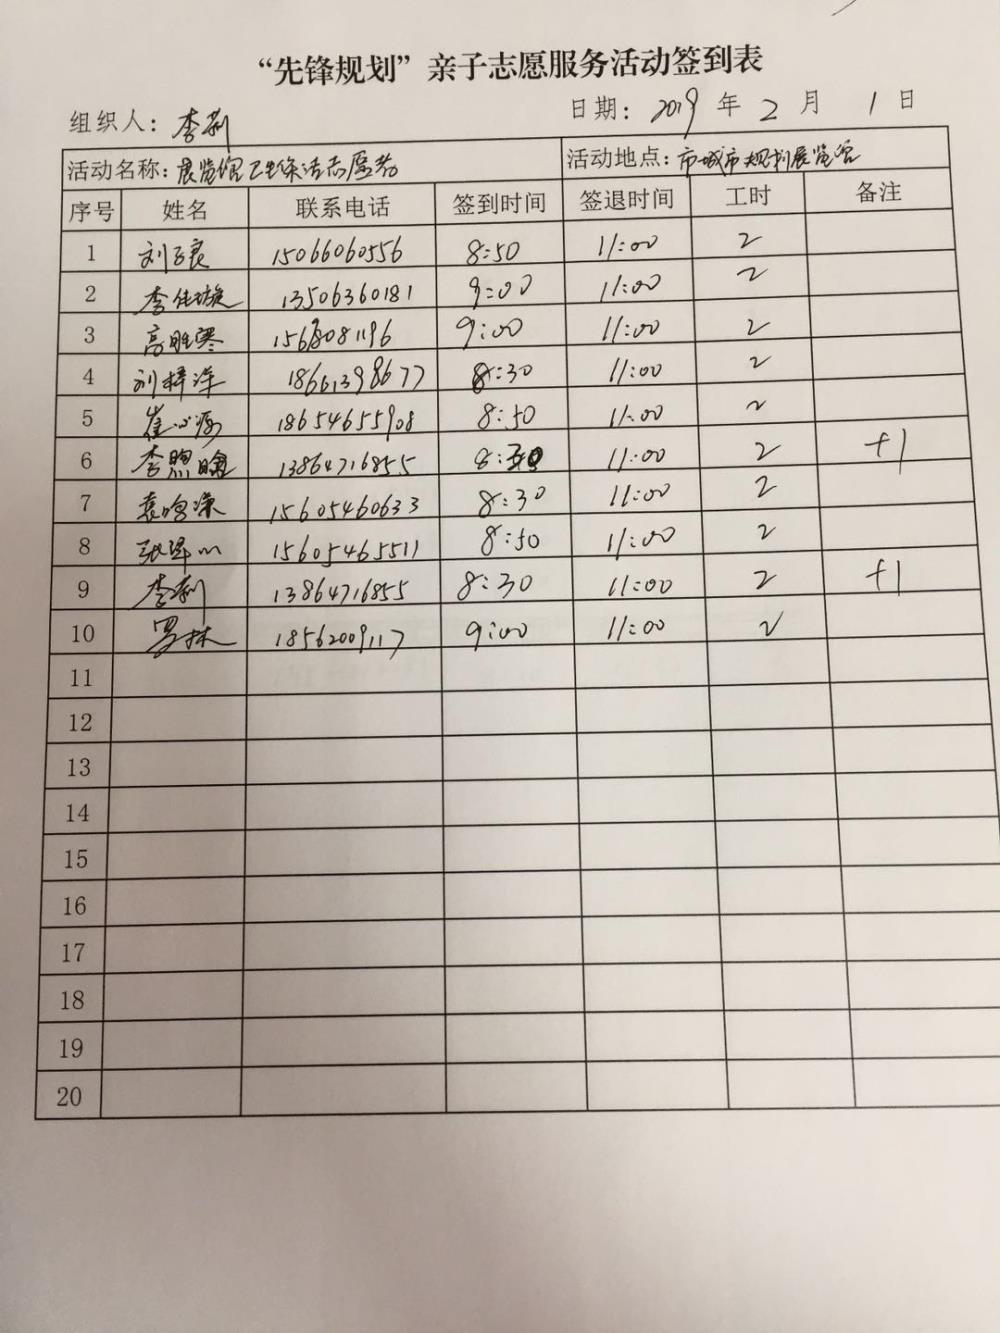 “先锋规划”亲子志愿服务活动签到表
组织人：李莉 日期：2019 年 2 月 1 日
活动名称：展览馆卫生保洁志愿者 活动地点：市城市规划展览馆
序号 姓名 联系电话 签到时间 签退时间 工时 备注
1 15066060556 8:50 11:00 2
2 13506360181 9:00 11:00 2
3 9:00 11:00 2
4 刘梓洋 18661398677 8:30 11:00 2
5 18654655908 8:50 11:00 2
6 13864716855 11:00 2 +1
7 15605460633 8:30 11:00 2
8 15605465511 8:50 11:00 2
9 李莉 13864716855 8:30 11:00 2 +1
10 罗林 18562009117 9:00 11:00 2
11
12
13
14
15
16
17
18
19
20